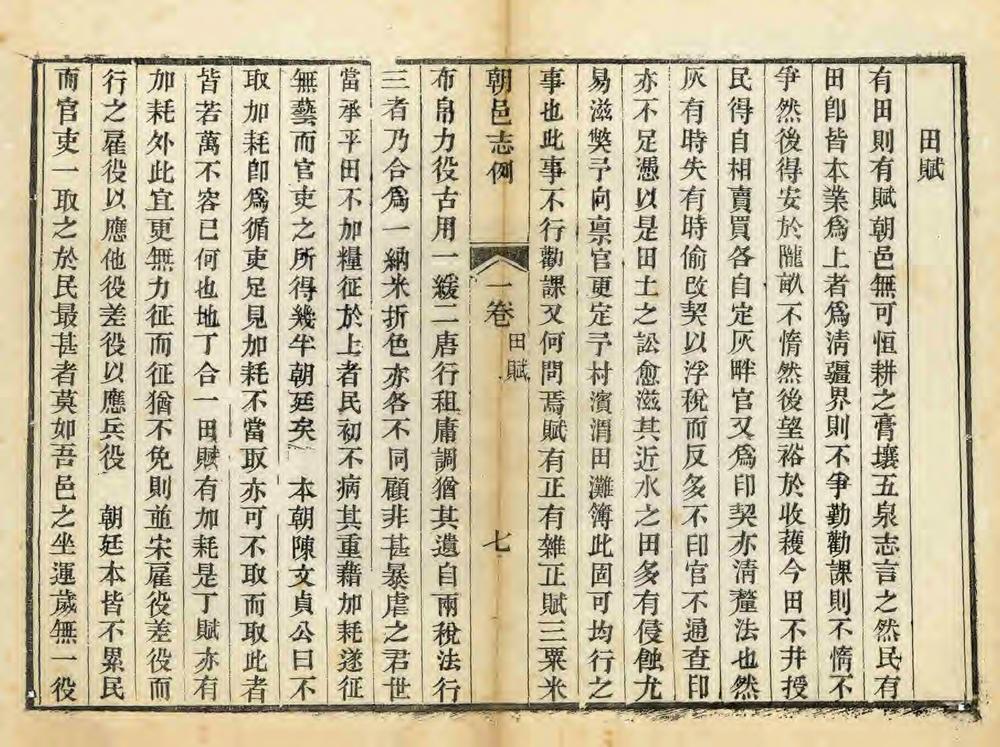 田賦
有田則有賦朝邑無可恒耕之膏壤五泉志言之然民有
田卽皆本業爲上者爲淸疆界則不爭勤勸課則不惰不
爭然後得安於隴畝不惰然後望裕於收穫今田不井授
民得自相賣買各自定灰畔官又爲印契亦淸釐法也然
灰有時失有時偷改契以浮稅而反多不印官不通查印
亦不足憑以是田土之訟愈滋其近水之田多有侵蝕尤
易滋獘予向禀官更定予村濱渭田灘簿此固可均行之
事也此事不行勸課又何問焉賦有正有雜正賦三粟米
朝邑志例
一卷
田賦
七
布帛力役古用一緩二唐行租庸調猶其遺自兩稅法行
三者乃合爲一納米折色亦各不同顧非甚暴虐之君世
當承平田不加糧征於上者民初不病其重藉加耗遂征
無藝而官吏之所得幾半朝廷矣 本朝陳文貞公曰不
取加耗卽爲循吏足見加耗不當取亦可不取而取此者
皆若萬不容已何也地丁合一田賦有加耗是丁賦亦有
加耗外此宜更無力征而征猶不免則並宋雇役差役而
行之雇役以應他役差役以應兵役 朝廷本皆不累民
而官吏一取之於民最甚者莫如吾邑之坐運歲無一役